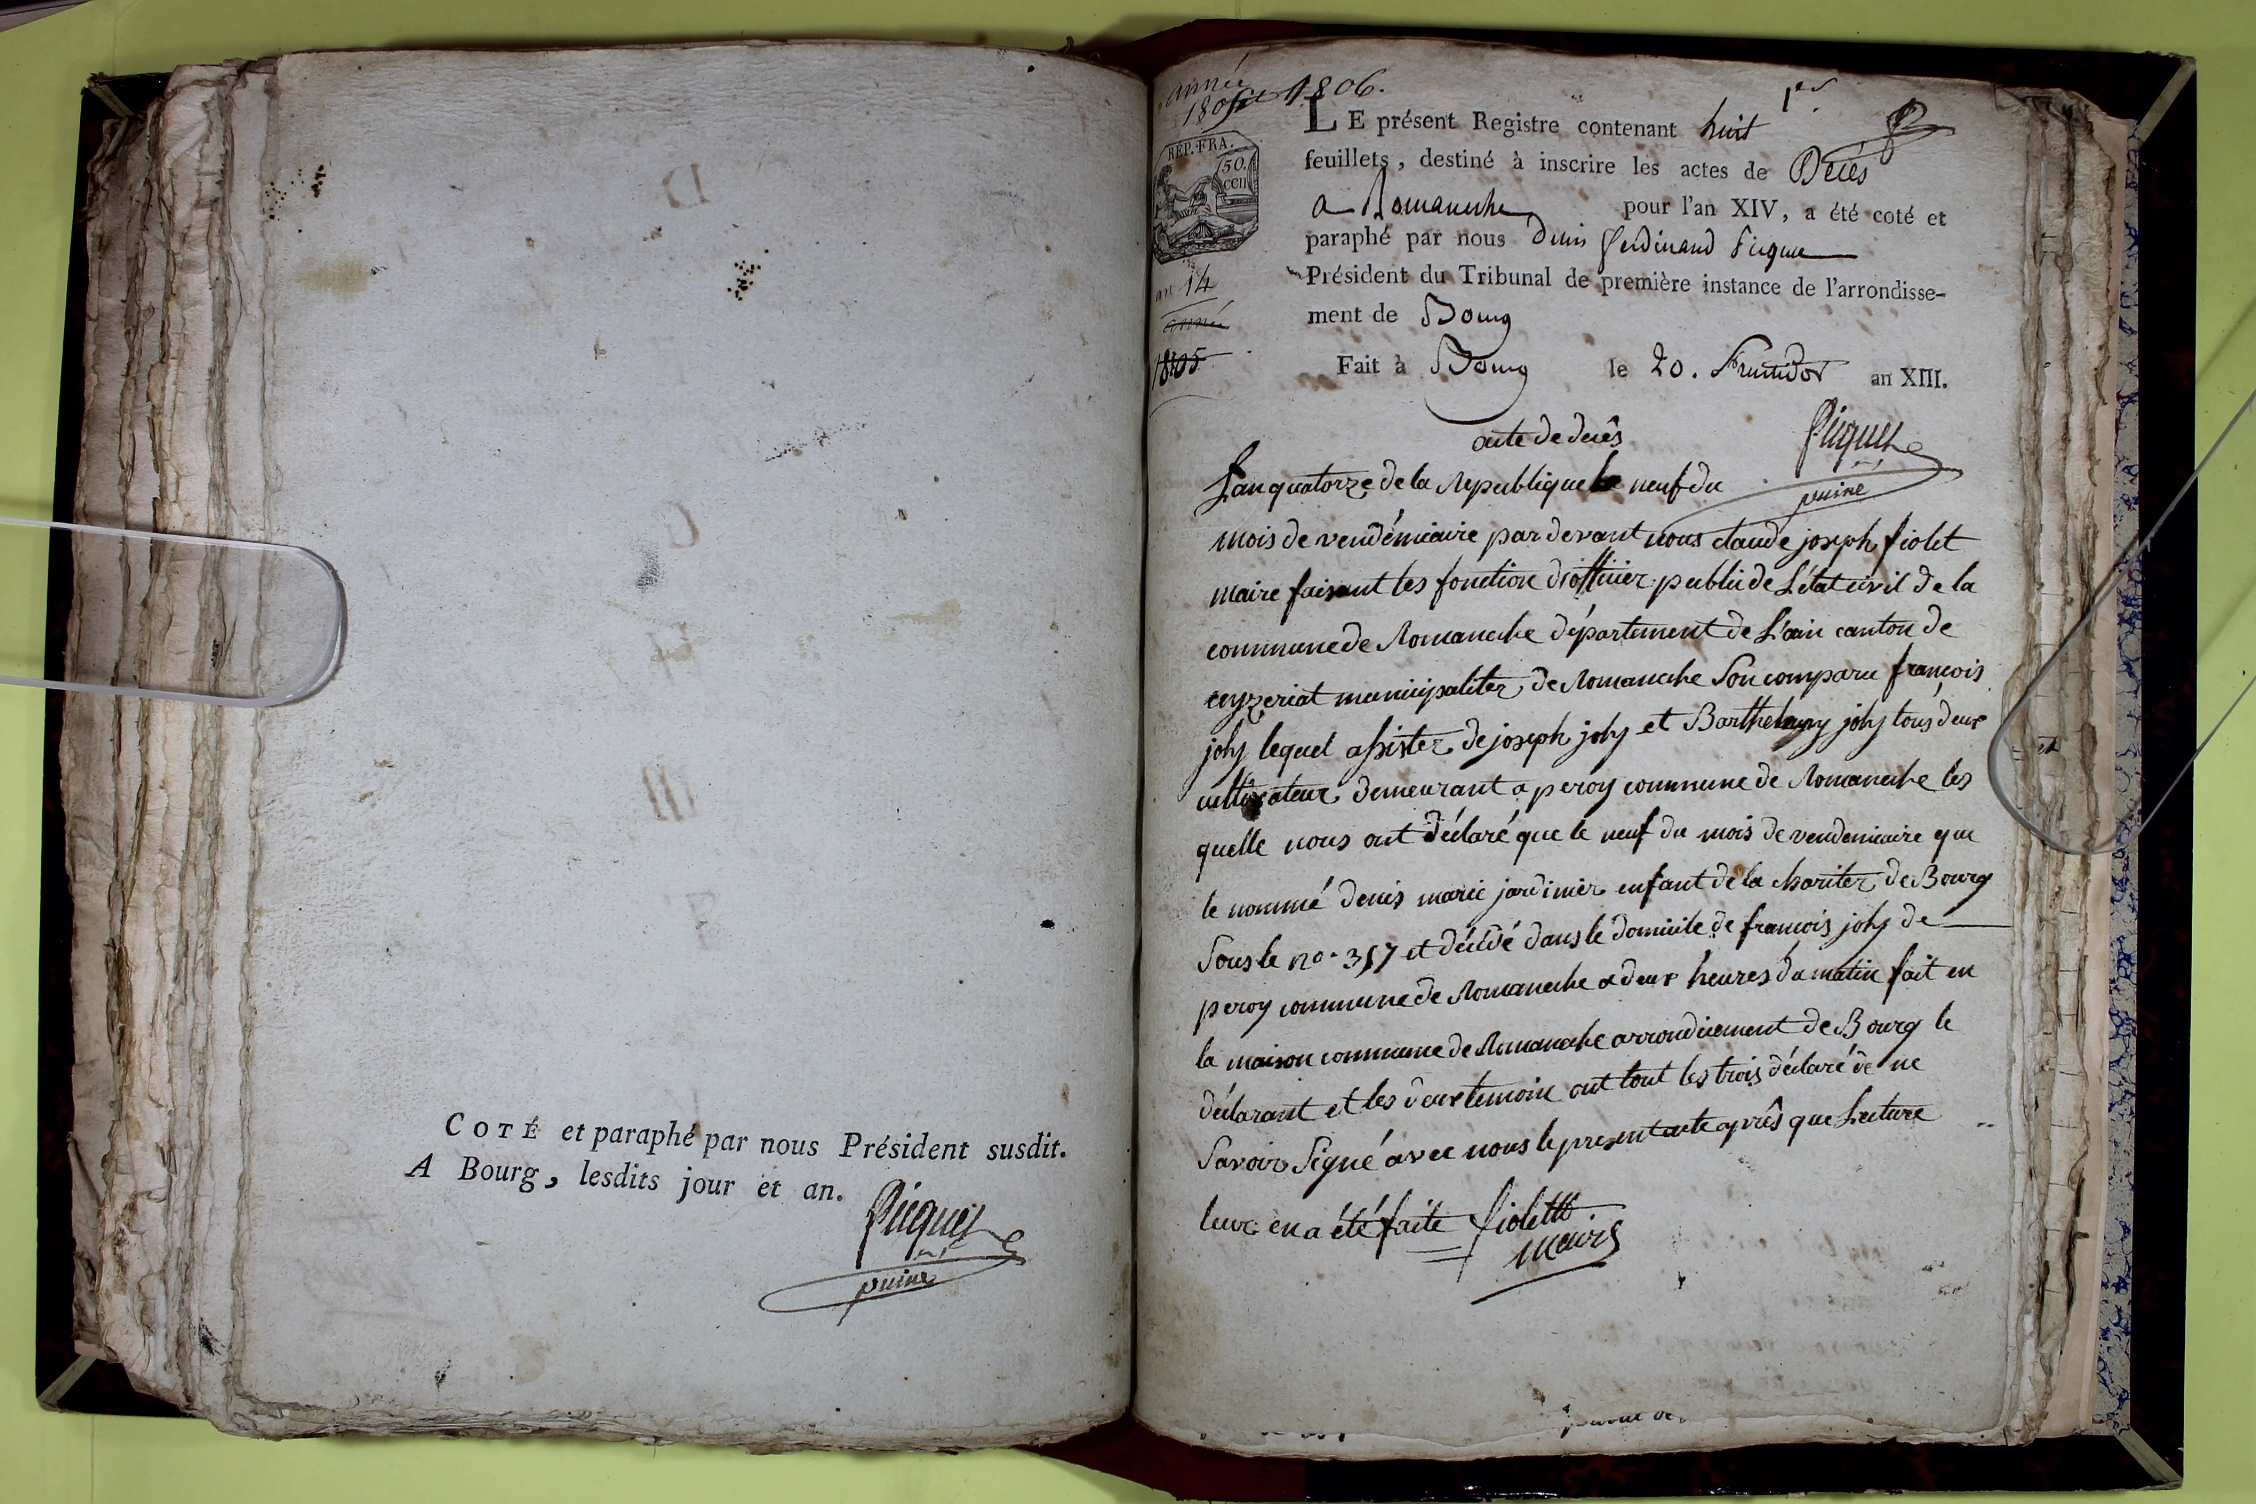 COTÉ et paraphé par nous Président susdit.
A Bourg, lesdits jour et an.
Picquet
puiné
année
1805 et 1806.
1er
REP. FRA.
50.
cen
an 14
année
1805
LE présent Registre contenant huit
feuillets, destiné à inscrire les actes de Décès
a Romaneche pour l'an XIV, a été coté et
paraphé par nous Denis ferdinand Picquet
Président du Tribunal de première instance de l'arrondisse-
ment de Bourg
Fait à Bourg le 20. Fructidor an XIII.
Picquet
puiné
acte de decês
Lan quatorze de la Republique le neuf du
mois de vendémieaire par devant nous claude joseph fiolet
maire faisant les fonction d'officier public de L'état civil de la
commune de Romaneche département de L'ain canton de
ceyzeriat municipaliter de Romaneche Son comparu françois
joly lequel assister de joseph joly et Barthelemy joly tous deux
cultivateur demeurant a peroy commune de Romaneche les
quelle nous ont déclaré que le neuf du mois de vendemieaire que
le nommé denis marie jardinier enfant de la chariter de Bourg
Sous le no. 357 et décédé dans le domicile de francois joly de
peroy commune de Romaneche a deux heures du matin fait en
la maison commune de Romaneche arrondicement de Bourg le
déclarant et les deux temoin ont tout les trois déclaré de ne
Savoir Signé avec nous le present acte aprês que Lecture
leur en a été faite fiolet
maire